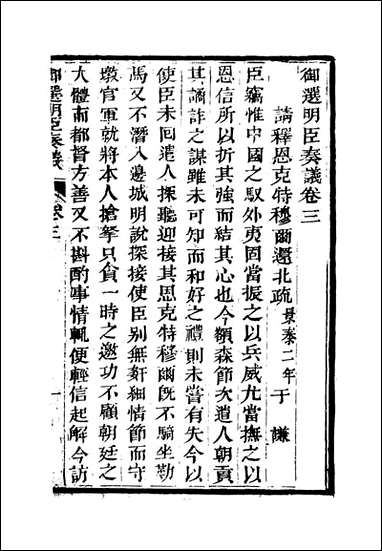 御選明臣奏議卷三
請釋恩克特穆爾還北疏景泰二年 于謙
臣竊惟中國之馭外夷固當振之以兵威尤當撫之以
恩信所以折其強而結其心也今額森節次遣人朝貢
其譎詐之謀雖未可知而和好之禮則未嘗有失今以
使臣未回遣人探聽迎接其恩克特穆爾旣不騎坐勒
馬又不潛入邊城明說探接使臣别無奸細情節而守
墩官軍就將本人搶拏只貪一時之邀功不顧朝廷之
大體而都督方善又不斟酌事情輒便輕信起解今訪
御選明臣奏議 卷三 一